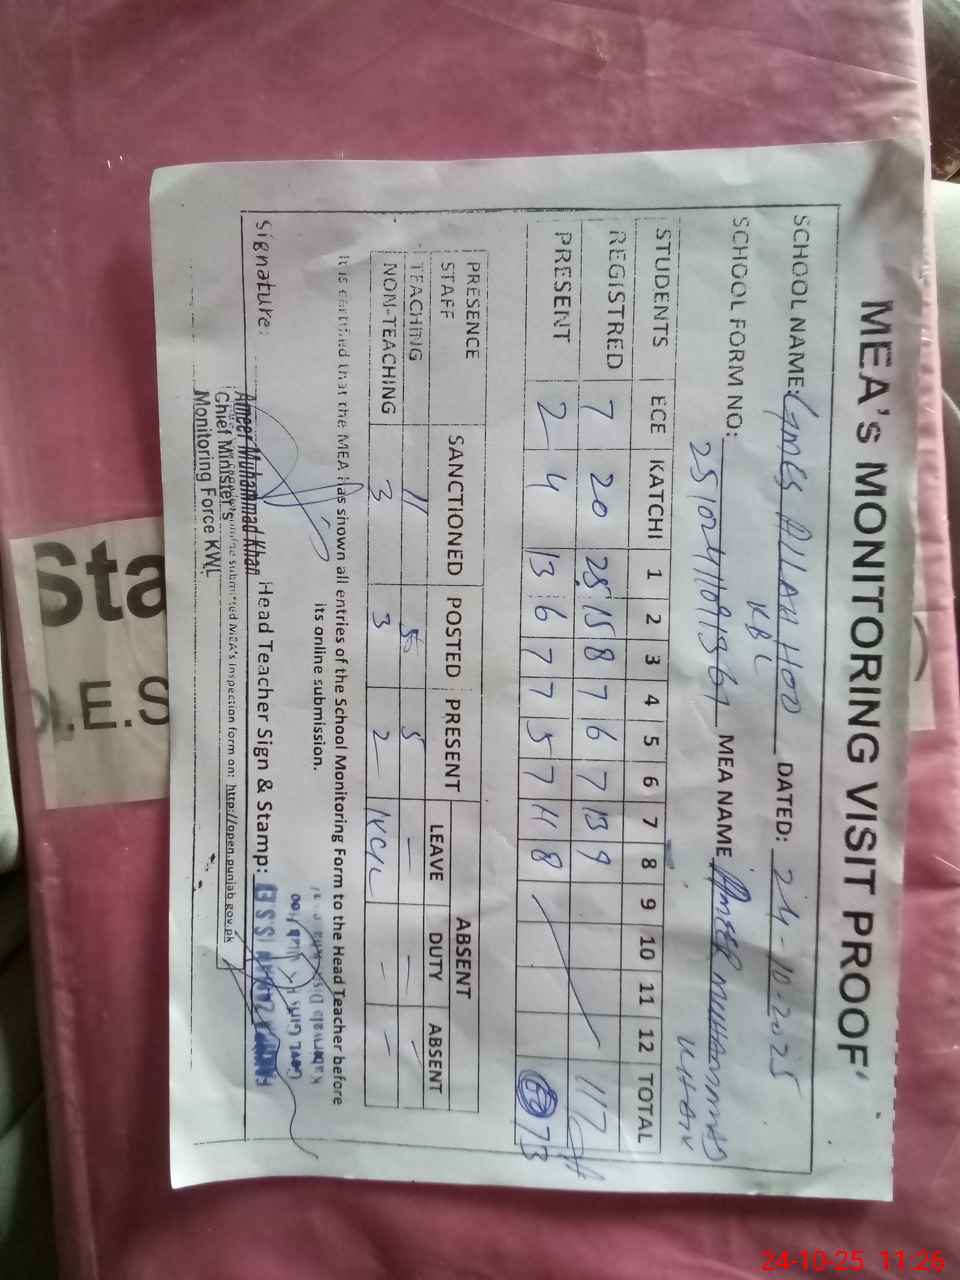 MEA's MONITORING VISIT PROOF'
SCHOOL NAME: GMES ALLAH HOO DATED: 24-10-2025
KBL
SCHOOL FORM NO: MEA NAME AMEER MUHAMMAD
KHAN
STUDENTS ECE KATCHI 1 2 3 4 5 6 7 8 9 10 11 12 TOTAL
REGISTRED 7 20 25 15 8 7 6 7 13 9 117
PRESENT 2 4 13 6 7 7 5 7 11 8 73
PRESENCE SANCTIONED POSTED PRESENT ABSENT
STAFF LEAVE DUTY ABSENT
TEACHING 11 5 5 - - -
NON-TEACHING 3 3 2 - -
It is certified that the MEA has shown all entries of the School Monitoring Form to the Head Teacher before
its online submission.
Signature: Head Teacher Sign & Stamp:
Ameer Muhammad Khan
Chief Minister's
Monitoring Force KWL
online submitted MEA's inspection form on: http://open.punjab.gov.pk
Sta
.E.S
24-10-25 11:26